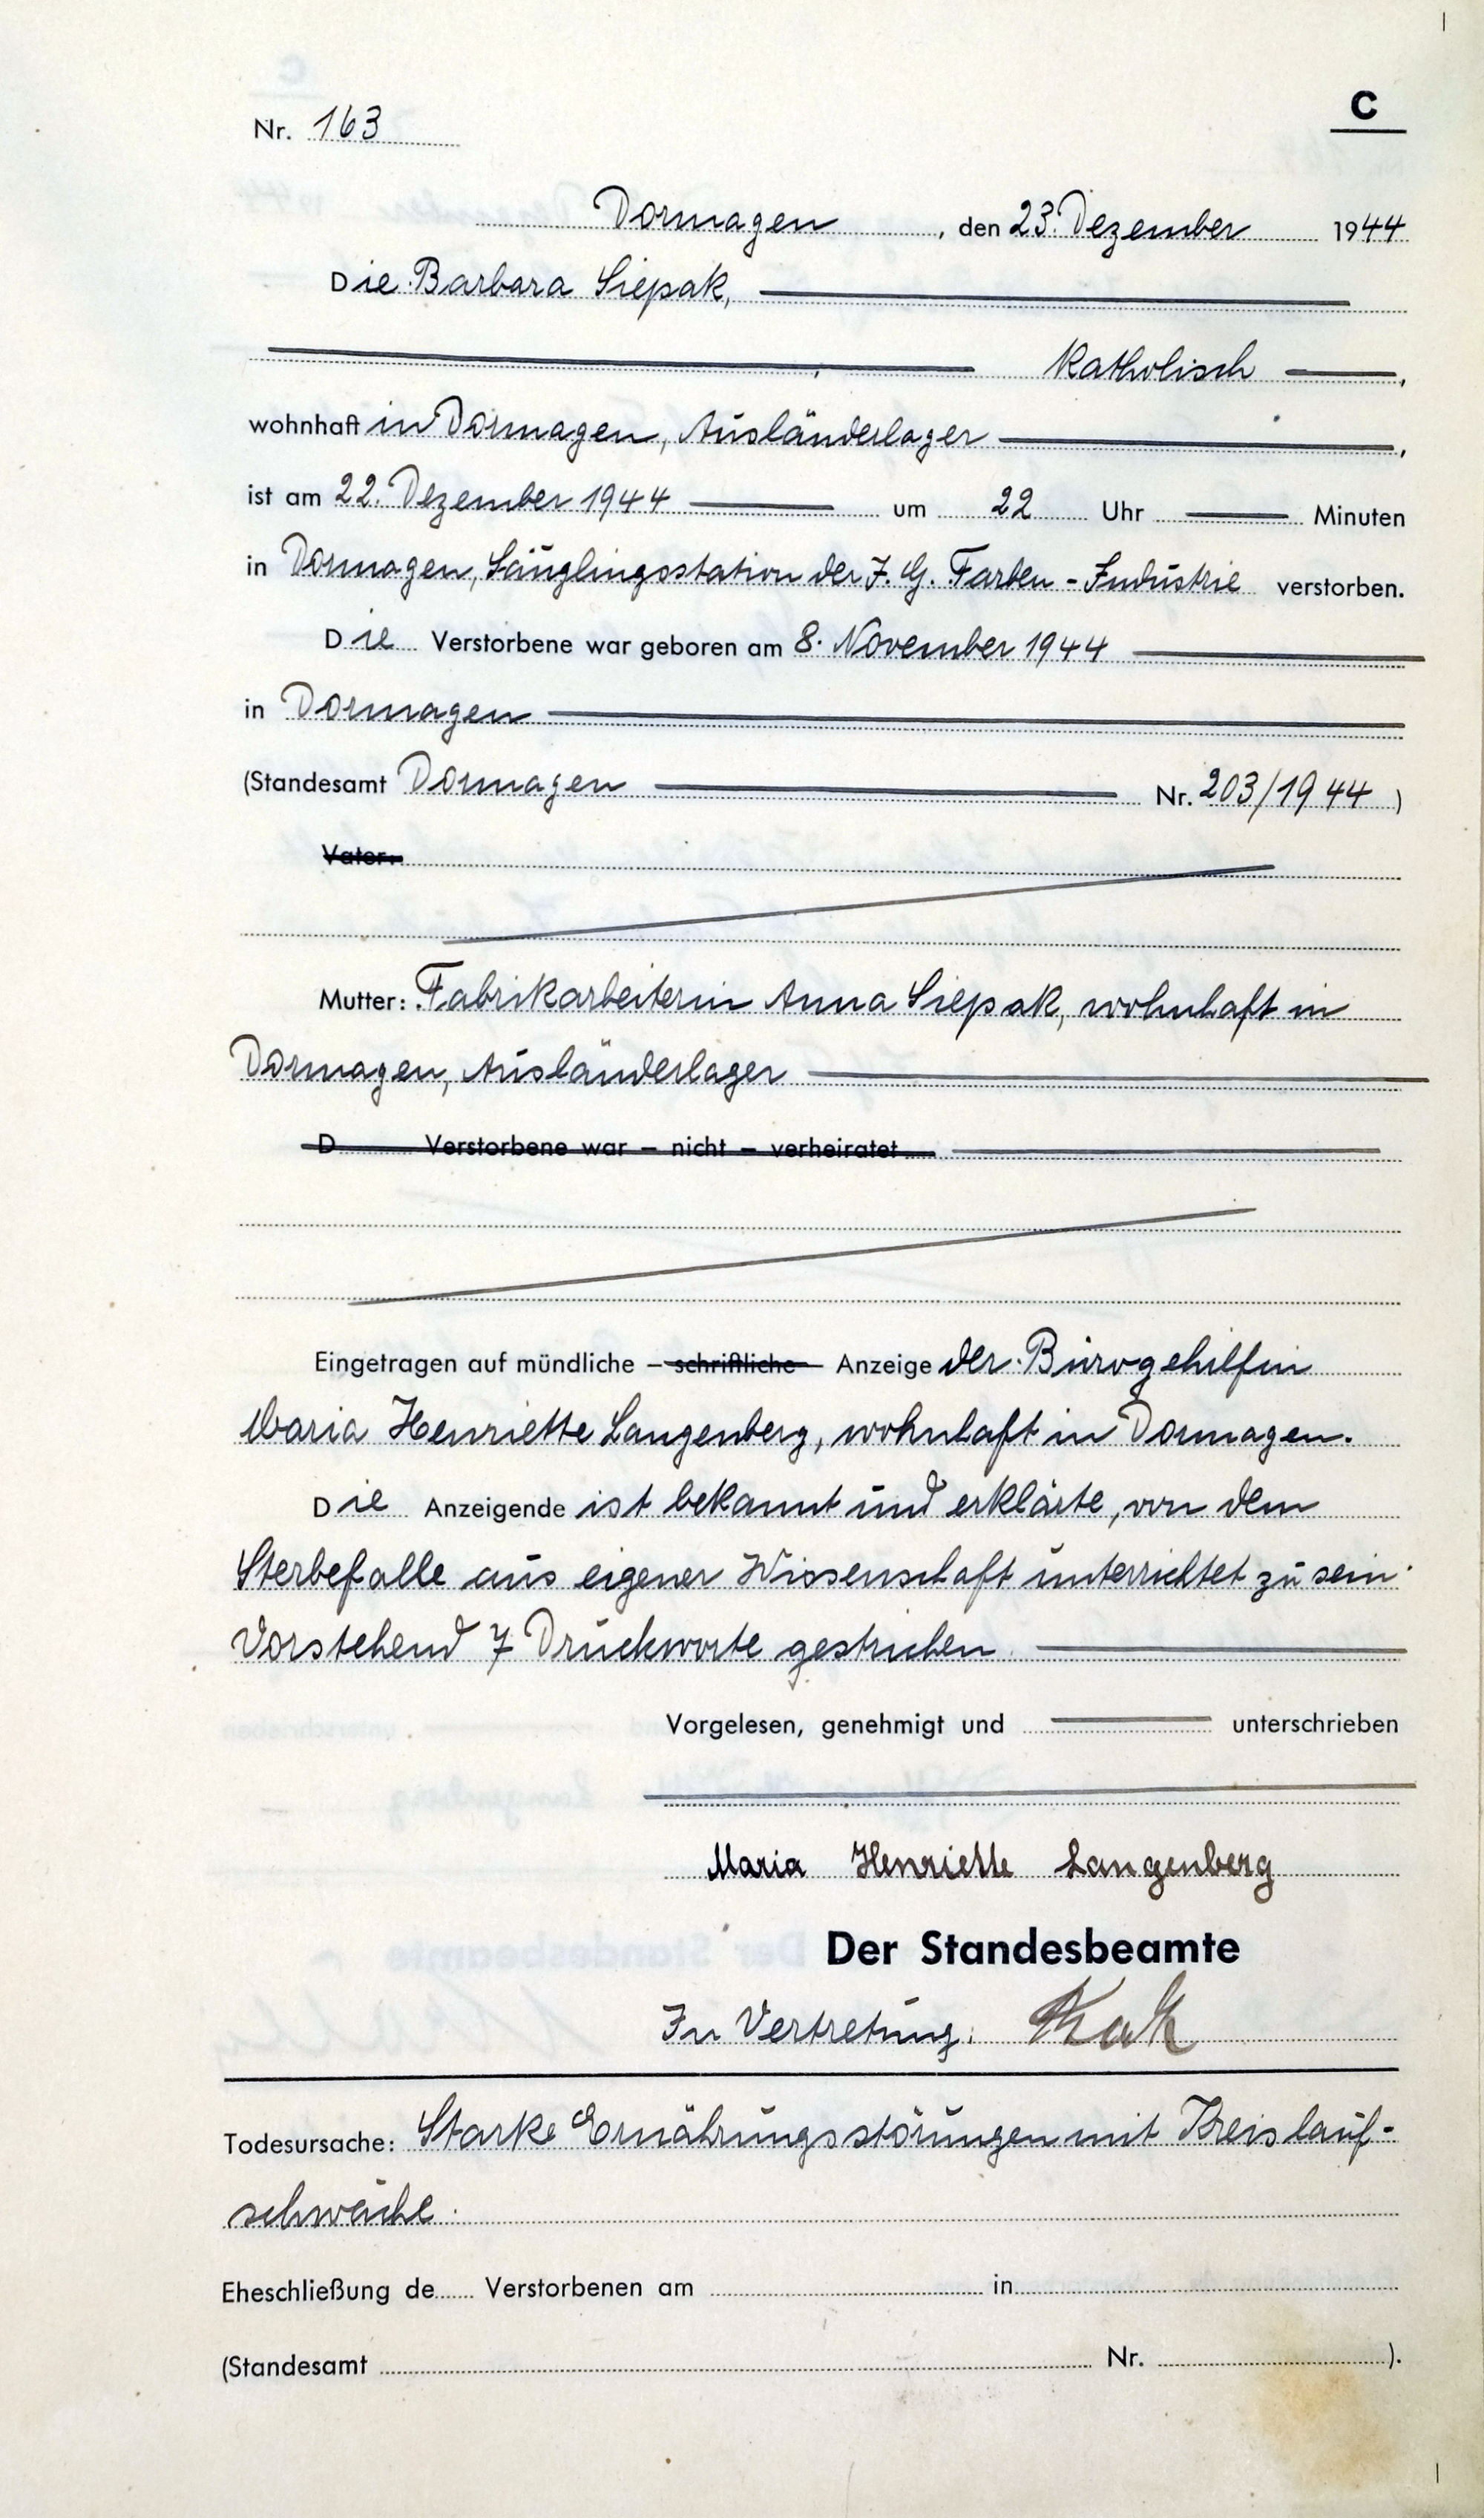 C
Nr. 163
Dormagen, den 23. Dezember 1944
Die Barbara Siepak,
katholisch,
wohnhaft in Dormagen, Ausländerlager,
ist am 22. Dezember 1944 um 22 Uhr Minuten
in Dormagen, Säuglingsstation der I. G. Farben-Industrie verstorben.
Die Verstorbene war geboren am 8. November 1944
in Dormagen
(Standesamt Dormagen Nr. 203/1944)
Vater:
Mutter: Fabrikarbeiterin Anna Siepak, wohnhaft in
Dormagen, Ausländerlager
D Verstorbene war – nicht – verheiratet
Eingetragen auf mündliche – schriftliche – Anzeige der Bürogehilfin
Maria Henriette Langenberg, wohnhaft in Dormagen.
Die Anzeigende ist bekannt und erklärte, von dem
Sterbefalle aus eigener Wissenschaft unterrichtet zu sein.
Vorstehend 7 Druckworte gestrichen.
Vorgelesen, genehmigt und unterschrieben
Maria Henriette Langenberg
Der Standesbeamte
In Vertretung:
Todesursache: Starke Ernährungsstörungen mit Kreislauf-
schwäche.
Eheschließung de Verstorbenen am in
(Standesamt Nr. ).